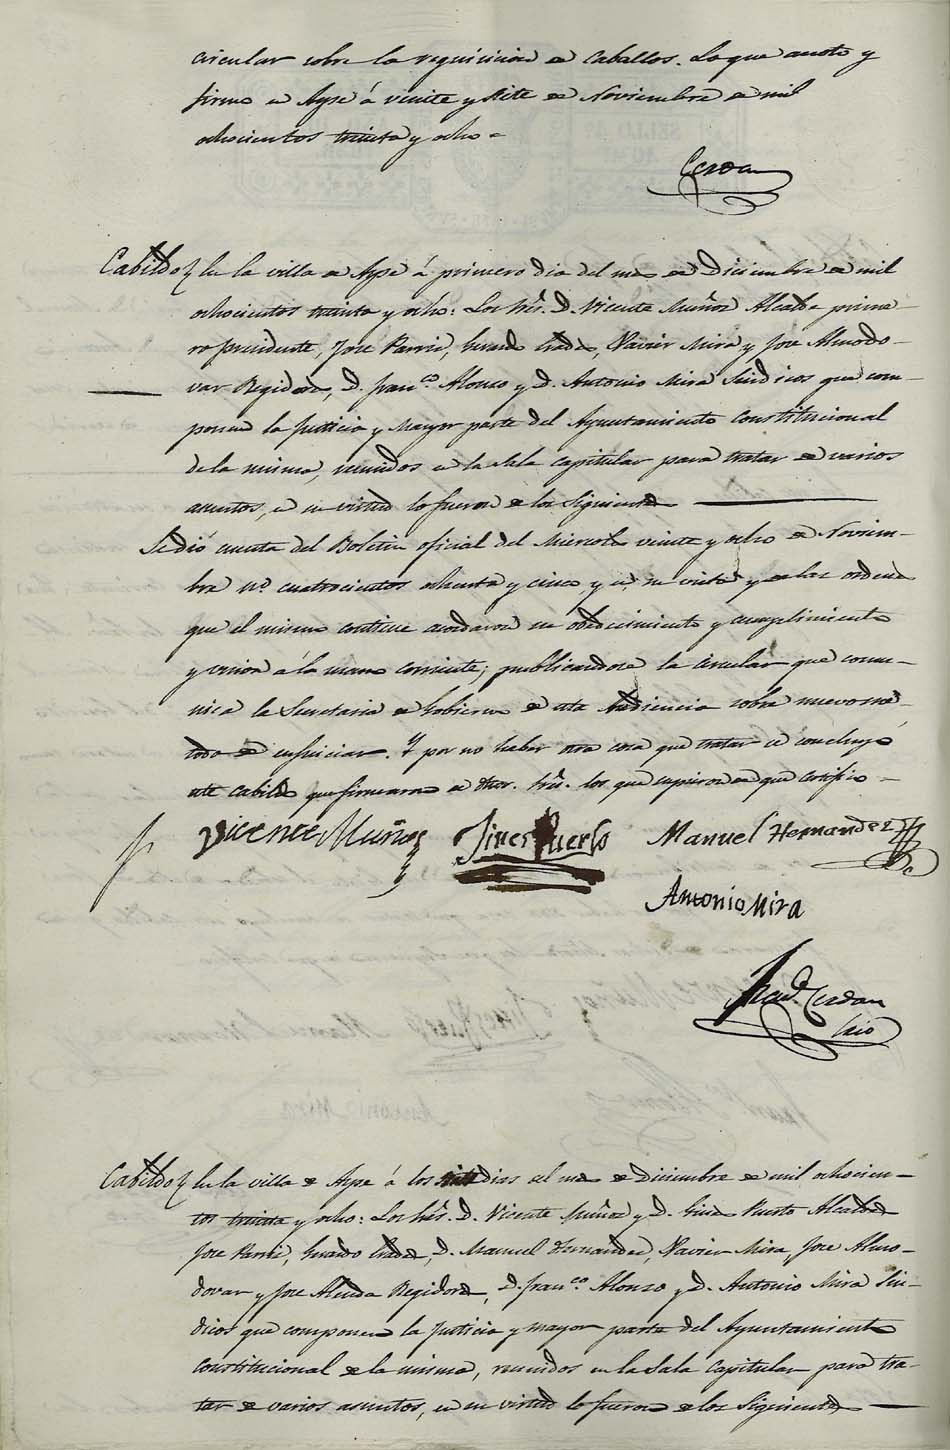 circular sobre la requisicion de Caballos. Lo que anoto y
firmo en Aspe á veinte y siete de Noviembre de mil
ochocientos treinta y ocho =
Cerdan
Cabildo} En la villa de Aspe á primero dia del mes de Diciembre de mil
ochocientos treinta y ocho: Los Sres. D. Vicente Muñoz Alcalde prime-
ro presidente, Jose Pavia, Gerardo Prade, Xavier Mira y Jose Almodo-
var Regidores, D. Franco. Alonso y D. Antonio Mira Sindicos que com-
ponen la Justicia y Mayor parte del Ayuntamiento Constitucional
de la misma, reunidos en la Sala capitular para tratar de varios
asuntos, en su virtud lo fueron de los siguientes
Se dió cuenta del Boletin oficial del Miercoles veinte y ocho de Noviem-
bre no. cuatrocientos ochenta y cinco, y en su vista y de las ordenes
que el mismo contiene acordaron su obedecimiento y cumplimiento
y union á la mano corriente; publicandose la circular que comu-
nica la Secretaria de Gobierno de esta Audiencia sobre nuevo mé-
todo de enjuiciar. Y por no haber otra cosa que tratar se concluyó
este Cabildo que firmaron de dhos. Sres. los que supieron de que certifico =
Vicente Muñoz Gines Puerto Manuel Hernandez
Antonio Mira
Franco. Cerdan
Srio
Cabildo} En la villa de Aspe á los siete dias del mes de Diciembre de mil ochocien-
tos treinta y ocho: Los Sres. D. Vicente Muñoz y D. Gines Puerto Alcaldes
Jose Pavia, Gerardo Prade, D. Manuel Hernandez, Xavier Mira, Jose Almo-
dovar y Jose Alenda Regidores, D. Franco. Alonso y D. Antonio Mira Sin-
dicos que componen la Justicia y mayor parte del Ayuntamiento
Constitucional de la misma, reunidos en la Sala Capitular para tra-
tar de varios asuntos, en su virtud lo fueron de los siguientes